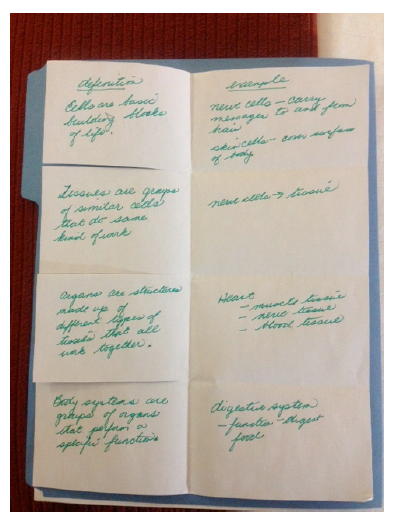 definition
Cells are basic
building blocks
of life.
example
nerve cells – carry
messages to and from
brain
skin cells – cover surface
of body
Tissues are groups
of similar cells
that do same
kind of work
nerve cells → tissue
Organs are structures
made up of
different types of
tissues that all
work together.
Heart
– muscle tissue
– nerve tissue
– blood tissue
Body systems are
groups of organs
that perform a
specific function
digestive system
– function – digest
food